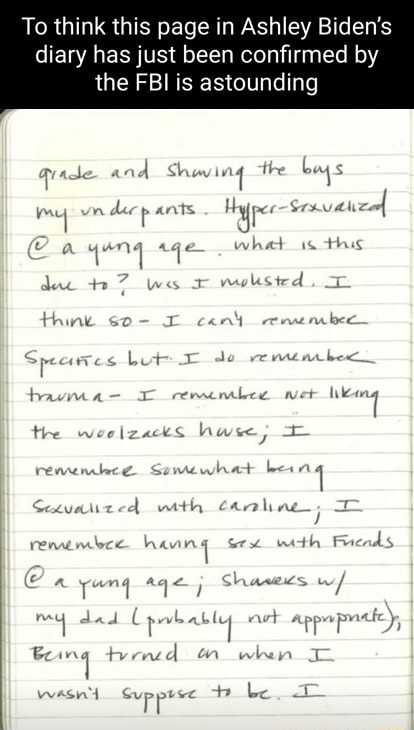 To think this page in Ashley Biden's
diary has just been confirmed by
the FBI is astounding
grade and showing the boys
my underpants. Hyper-sexualized
@ a yung age. What is this
due to? Was I molested. I
think so - I can't remember
specifics but I do remember
trauma - I remember not liking
the woolzacks house; I
remember somewhat being
sexualized with caroline; I
remember having sex with friends
@ a yung age; showers w/
my dad (probably not appropriate);
Being turned on when I
wasn't suppose to be. I